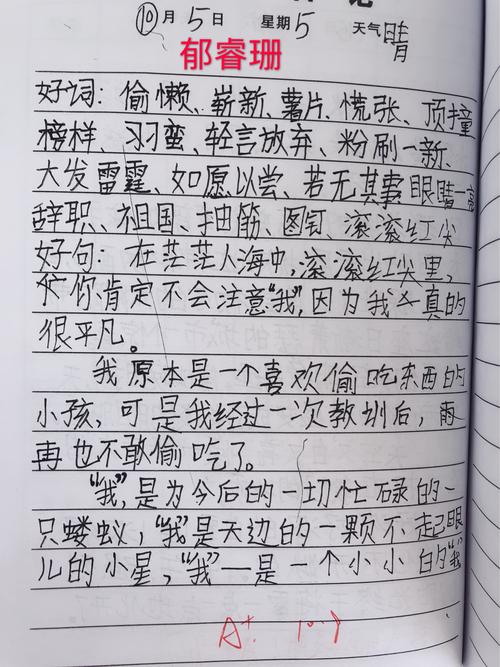 ⑩月5日 星期5 天气晴
郁睿珊
好词：偷懒、崭新、薯片、慌张、顶撞
榜样、习蛮、轻言放弃、粉刷一新、
大发雷霆、如愿以尝、若无其事 眼睛一亮
辞职、祖国、抽筋、图钉、滚滚红尖
好句：在茫茫人海中，滚滚红尖里，
你肯定不会注意“我”，因为我 真的
很平凡。
我原本是一个喜欢偷吃东西的
小孩，可是我经过一次教训后，
再也不敢偷吃了。
“我”，是为今后的一切忙碌的一
只蝼蚁，“我”是天边的一颗不起眼
儿的小星，“我”一是一个小小白的“我
A+ 10.9